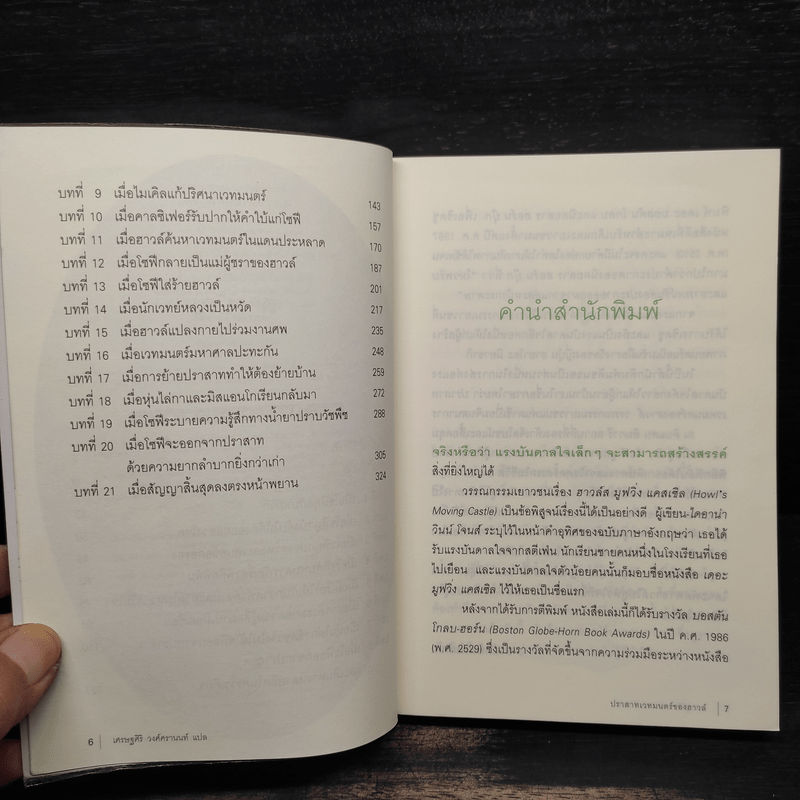 บทที่ 9 เมื่อไมเคิลแก้ปริศนาเวทมนตร์ 143
บทที่ 10 เมื่อคาลซิเฟอร์รับปากให้คำใบ้แก่โซฟี 157
บทที่ 11 เมื่อฮาวล์ค้นหาเวทมนตร์ในแดนประหลาด 170
บทที่ 12 เมื่อโซฟีกลายเป็นแม่ผู้ชราของฮาวล์ 187
บทที่ 13 เมื่อโซฟีใส่ร้ายฮาวล์ 201
บทที่ 14 เมื่อนักเวทย์หลวงเป็นหวัด 217
บทที่ 15 เมื่อฮาวล์แปลงกายไปร่วมงานศพ 235
บทที่ 16 เมื่อเวทมนตร์มหาศาลปะทะกัน 248
บทที่ 17 เมื่อการย้ายปราสาททำให้ต้องย้ายบ้าน 259
บทที่ 18 เมื่อหุ่นไล่กาและมิสแอนโกเรียนกลับมา 272
บทที่ 19 เมื่อโซฟีระบายความรู้สึกทางน้ำยาปราบวัชพืช 288
บทที่ 20 เมื่อโซฟีจะออกจากปราสาท
ด้วยความยากลำบากยิ่งกว่าเก่า 305
บทที่ 21 เมื่อสัญญาสิ้นสุดลงตรงหน้าพยาน 324
6 | เศรษฐศิริ วงศ์ศรานนท์ แปล
คำนำสำนักพิมพ์
จริงหรือว่า แรงบันดาลใจเล็กๆ จะสามารถสร้างสรรค์
สิ่งที่ยิ่งใหญ่ได้
วรรณกรรมเยาวชนเรื่อง ฮาวล์ส มูฟวิ่ง แคสเซิล (Howl"s
Moving Castle) เป็นข้อพิสูจน์เรื่องนี้ได้เป็นอย่างดี ผู้เขียน-ไดอาน่า
วินน์ โจนส์ ระบุไว้ในหน้าคำอุทิศของฉบับภาษาอังกฤษว่า เธอได้
รับแรงบันดาลใจจากสตีเฟ่น นักเรียนชายคนหนึ่งในโรงเรียนที่เธอ
ไปเยือน และแรงบันดาลใจตัวน้อยคนนั้นก็มอบชื่อหนังสือ เดอะ
มูฟวิ่ง แคสเซิล ไว้ให้เธอเป็นชื่อแรก
หลังจากได้รับการตีพิมพ์ หนังสือเล่มนี้ก็ได้รับรางวัล บอสตัน
โกลบ-ฮอร์น (Boston Globe-Horn Book Awards) ในปี ค.ศ. 1986
(พ.ศ. 2529) ซึ่งเป็นรางวัลที่จัดขึ้นจากความร่วมมือระหว่างหนังสือ
ปราสาทเวทมนตร์ของฮาวล์ | 7